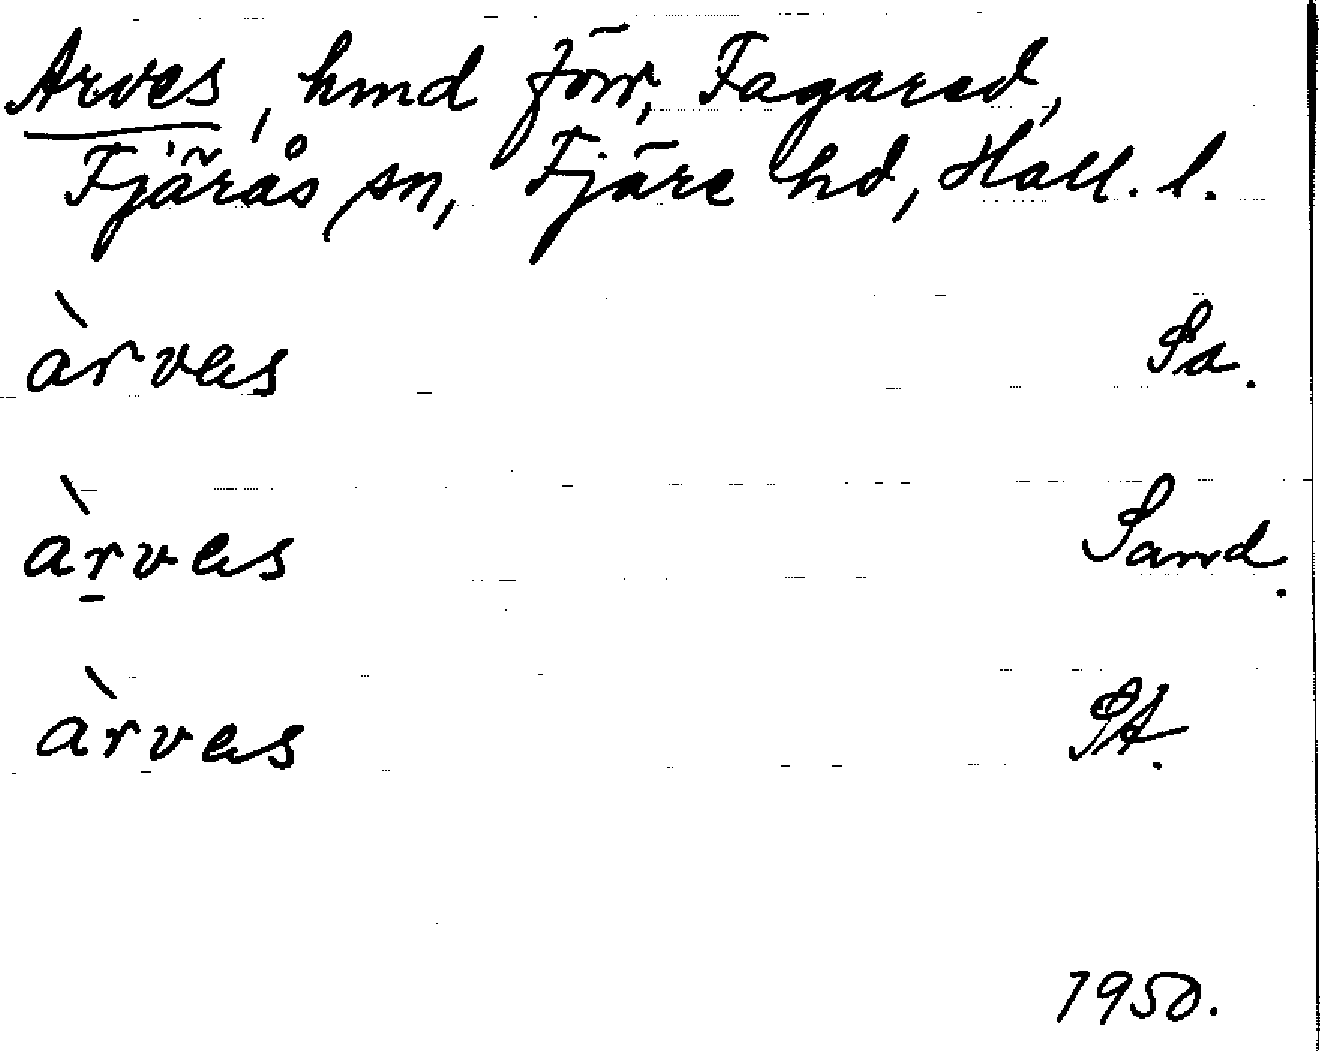 Arves, hmd förr, Fagared,
Fjärås sn, Fjäre hd, Hall. l.
àrvas Sa.
àrvas Sand.
àrvas St.
1950.